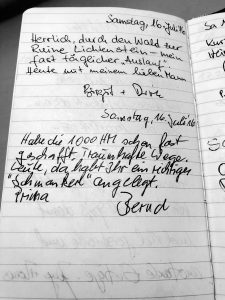 Samstag, 16. Juli 16
Herrlich, durch den Wald zur
Ruine Lichtenstein – mein
fast täglicher "Auslauf".
Heute mit meinem lieben Mann
Birgit + Dirk
Samstag, 16. Juli 16
Habe die 1000 HM schon fast
geschafft. Traumhafte Wege.
Leute, da habt Ihr ein richtiges
"Schmankerl" angelegt.
Prima
Bernd